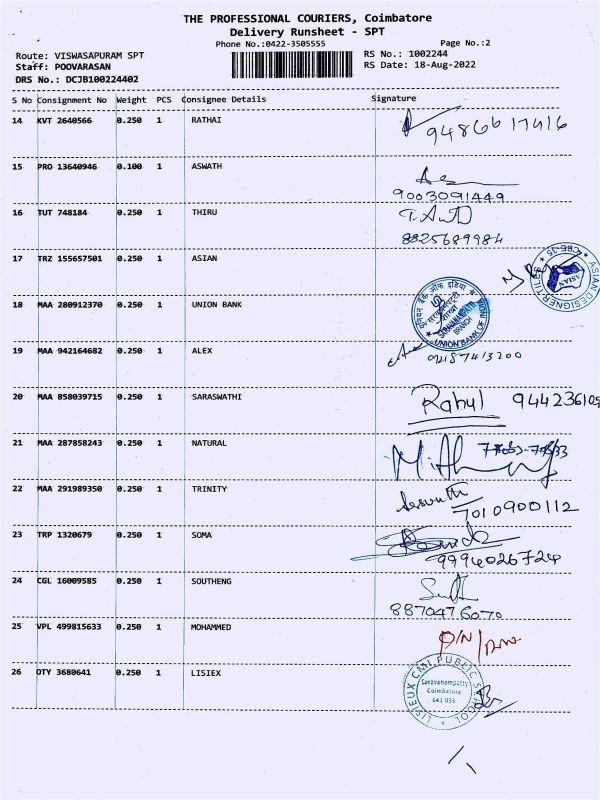 THE PROFESSIONAL COURIERS, Coimbatore
Delivery Runsheet - SPT
Phone No.:0422-3505555
Page No.:2
Route: VISWASAPURAM SPT
RS No.: 1002244
Staff: POOVARASAN
RS Date: 18-Aug-2022
DRS No.: DCJB100224402
S No Consignment No Weight PCS Consignee Details Signature
14 KVT 2640566 0.250 1 RATHAI
9486617416
15 PRO 13640946 0.100 1 ASWATH
9003091449
16 TUT 748184 0.250 1 THIRU
8825689984
17 TRZ 155657501 0.250 1 ASIAN
ASIAN DESIGNER TILES
CBE-35
ASIAN
18 MAA 280912370 0.250 1 UNION BANK
यूनियन बैंक ऑफ इंडिया
SARAVANAMPATTI
BRANCH
UNION BANK OF INDIA
19 MAA 942164682 0.250 1 ALEX
20 MAA 858039715 0.250 1 SARASWATHI
Rahul 944236109
21 MAA 287858243 0.250 1 NATURAL
22 MAA 291989350 0.250 1 TRINITY
7010900112
23 TRP 1320679 0.250 1 SOMA
9994026724
24 CGL 16009585 0.250 1 SOUTHENG
8870476070
25 VPL 499815633 0.250 1 MOHAMMED
26 OTY 3680641 0.250 1 LISIEX
LISIEUX CMI PUBLIC SCHOOL
Saravanampatty
Coimbatore
641 035